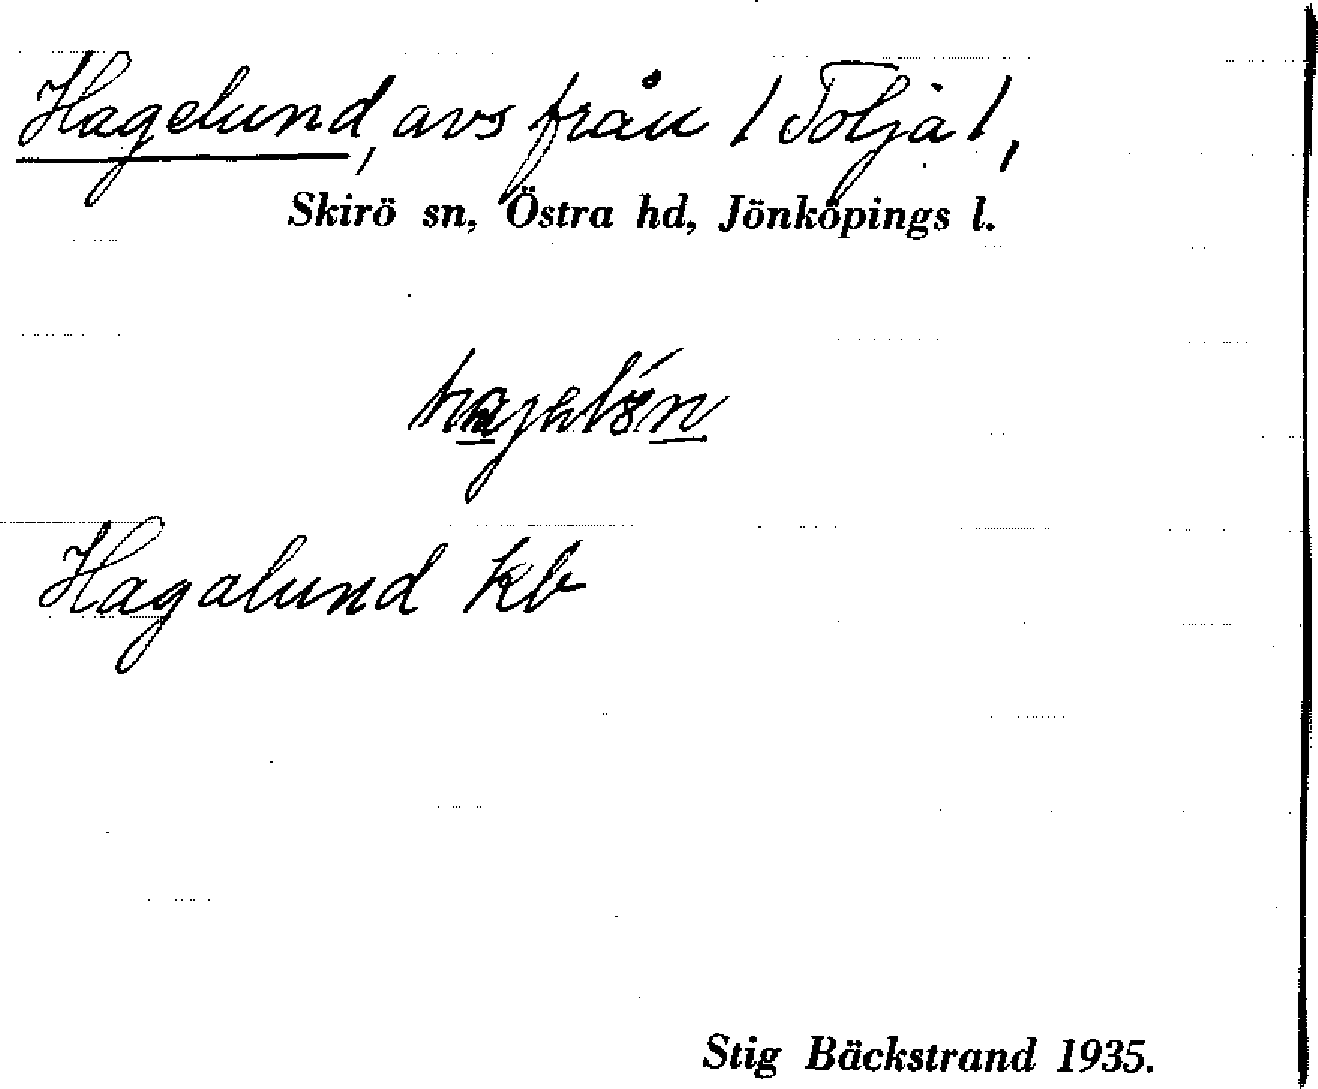 Hagelund, avs från / Tolja /,
Skirö sn, Östra hd, Jönköpings l.
Hagalund kb
Stig Bäckstrand 1935.